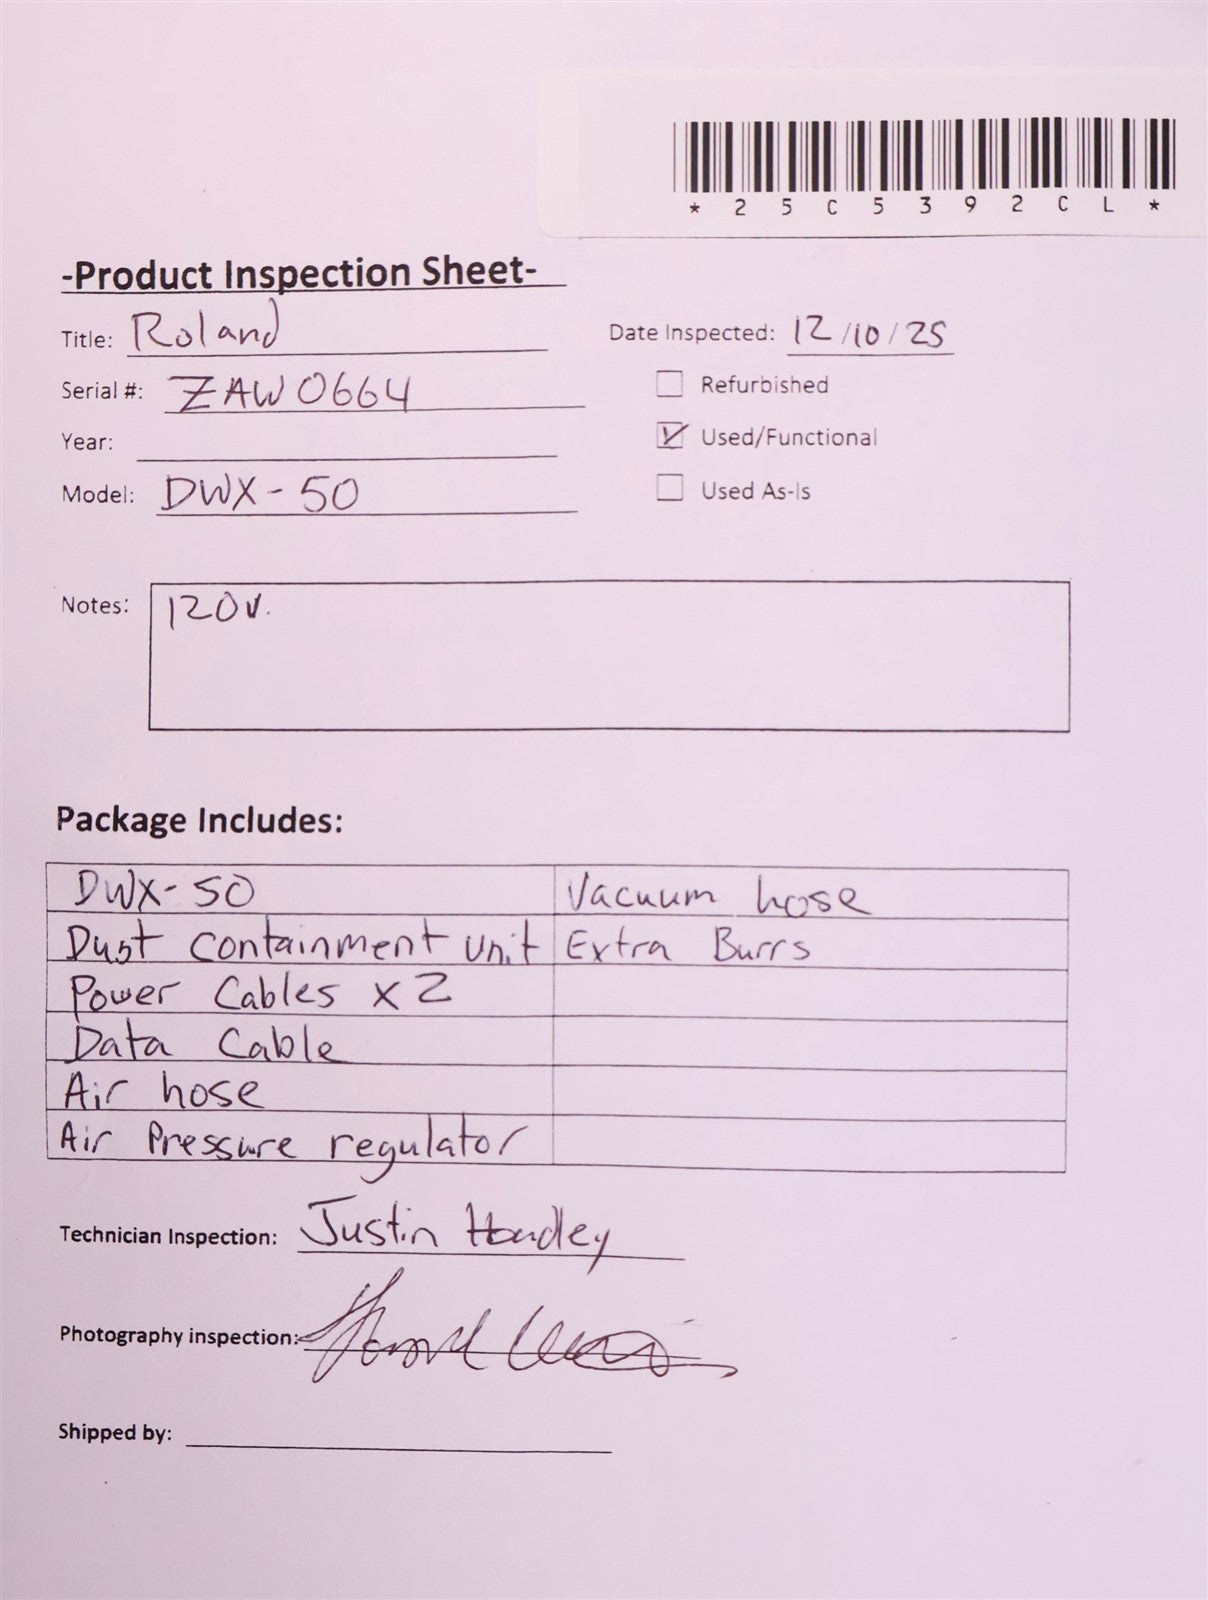 *25C5392CL*
-Product Inspection Sheet-
Title: Roland
Date Inspected: 12/10/25
Serial #: ZAW0664
Refurbished
Year:
Used/Functional
Model: DWX-50
Used As-Is
Notes: 120v.
Package Includes:
DWX-50 Vacuum hose
Dust Containment Unit Extra Burrs
Power Cables x2
Data Cable
Air hose
Air Pressure regulator
Technician Inspection: Justin
Photography inspection:
Shipped by: